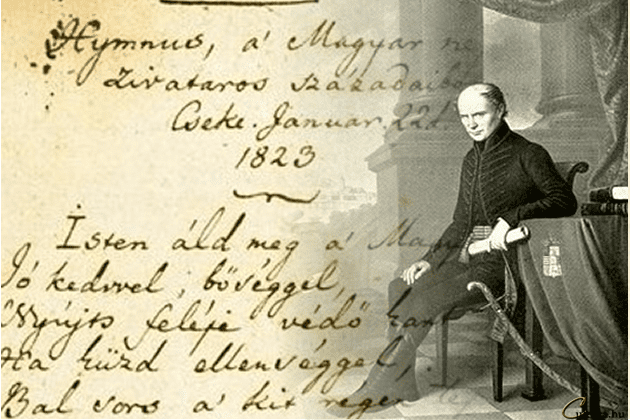 Hymnus, a' Magyar ne
Zivataros századaibó
Cseke. Januar. 22d.
1823
Isten áld meg a' Magy
Jó kedvvel, bőséggel,
Nyújts feléje védő kart
Ha küzd ellenséggel,
Bal sors a' kit régen te